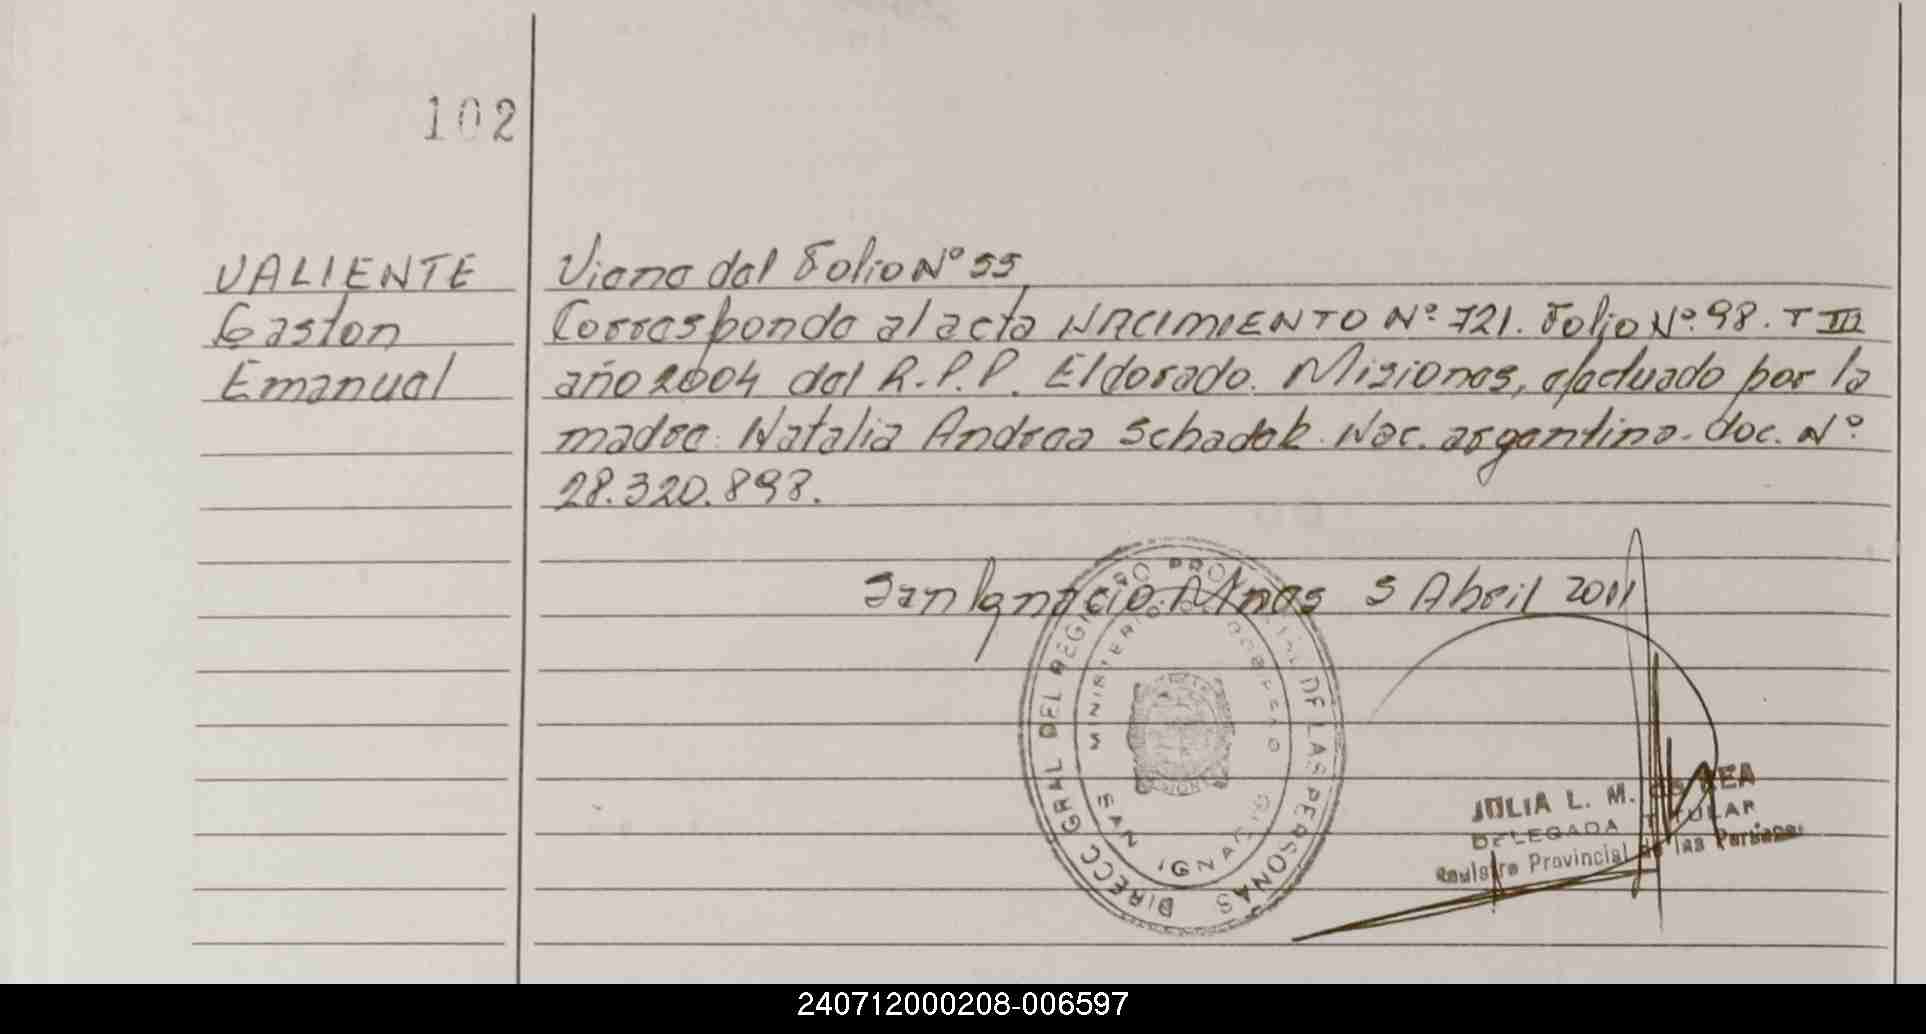 102
VALIENTE
Gaston
Emanuel
Viene del Folio Nº 55
Corresponde al acta NACIMIENTO Nº 721. Folio Nº 98. T III
año 2004 del R.P.P. Eldorado. Misiones, efectuado por la
madre: Natalia Andrea Schadek. Nac. argentina. doc. Nº
28.320.898.
San Ignacio. Mnes 5 Abril 2011
DIRECC GRAL DEL REGISTRO PROVINCIAL DE LAS PERSONAS
MINISTERIO DE GOBIERNO
SAN IGNACIO
JULIA L. M.
DELEGADA TITULAR
Registro Provincial de las Personas
240712000208-006597